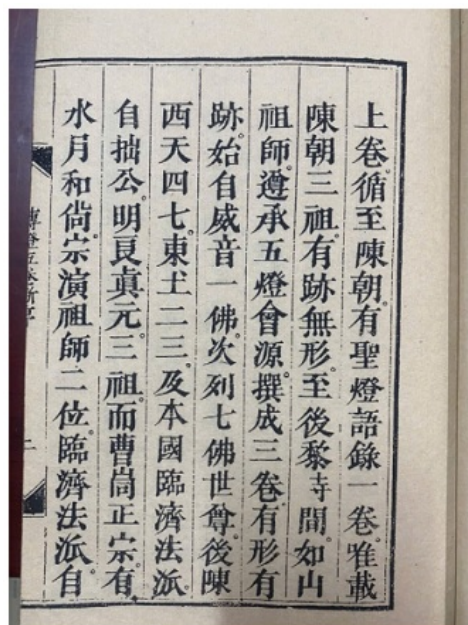 上卷。循至陳朝。有聖燈語錄一卷。唯載
陳朝三祖。有跡無形。至後黎寺間。如山
祖師。遵承五燈會源。撰成三卷。有形有
跡。始自威音一佛。次列七佛世尊。後陳
西天四七。東土二三。及本國臨濟法派。
自拙公。明良眞元。三祖。而曹峝正宗。有
水月和尙。宗演祖師二位。臨濟法派。自
二